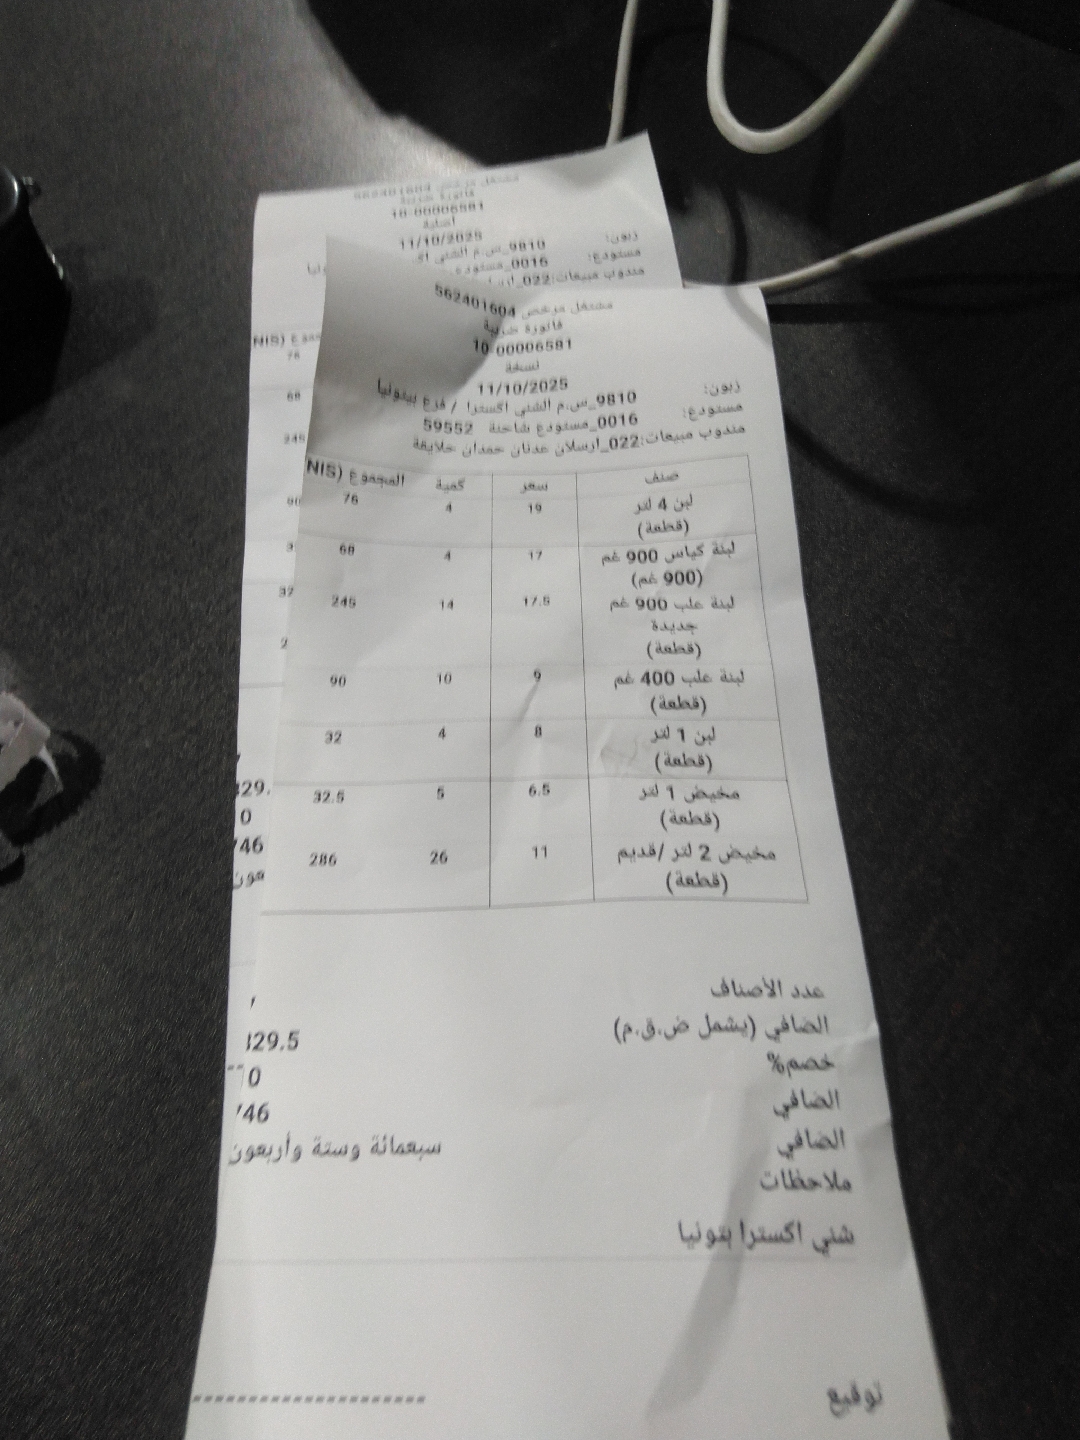 مشتغل مرخص 562401604
فاتورة ضريبة
10-00006581
أصلية
11/10/2025
زبون: 9810_س.م الشني اك
مستودع: 0016_مستودع
مندوب مبيعات:022_ارس
مشتغل مرخص 562401604
فاتورة ضريبة
10-00006581
نسخة
11/10/2025
زبون: 9810_س.م الشني اكسترا / فرع بيتونيا
مستودع: 0016_مستودع شاحنة 59552
مندوب مبيعات:022_ارسلان عدنان حمدان حلايقة
صنف سعر كمية المجموع (NIS
لبن 4 لتر 19 4 76
(قطعة)
لبنة كياس 900 غم 17 4 68
(900 غم)
لبنة علب 900 غم 17.5 14 245
جديدة
(قطعة)
لبنة علب 400 غم 9 10 90
(قطعة)
لبن 1 لتر 8 4 32
(قطعة)
مخيض 1 لتر 6.5 5 32.5
(قطعة)
مخيض 2 لتر /قديم 11 26 286
(قطعة)
عدد الأصناف
الصافي (يشمل ض.ق.م) 829.5
خصم% 10
الصافي 746
الصافي سبعمائة وستة وأربعون
ملاحظات
شني اكسترا بتونيا
توقيع